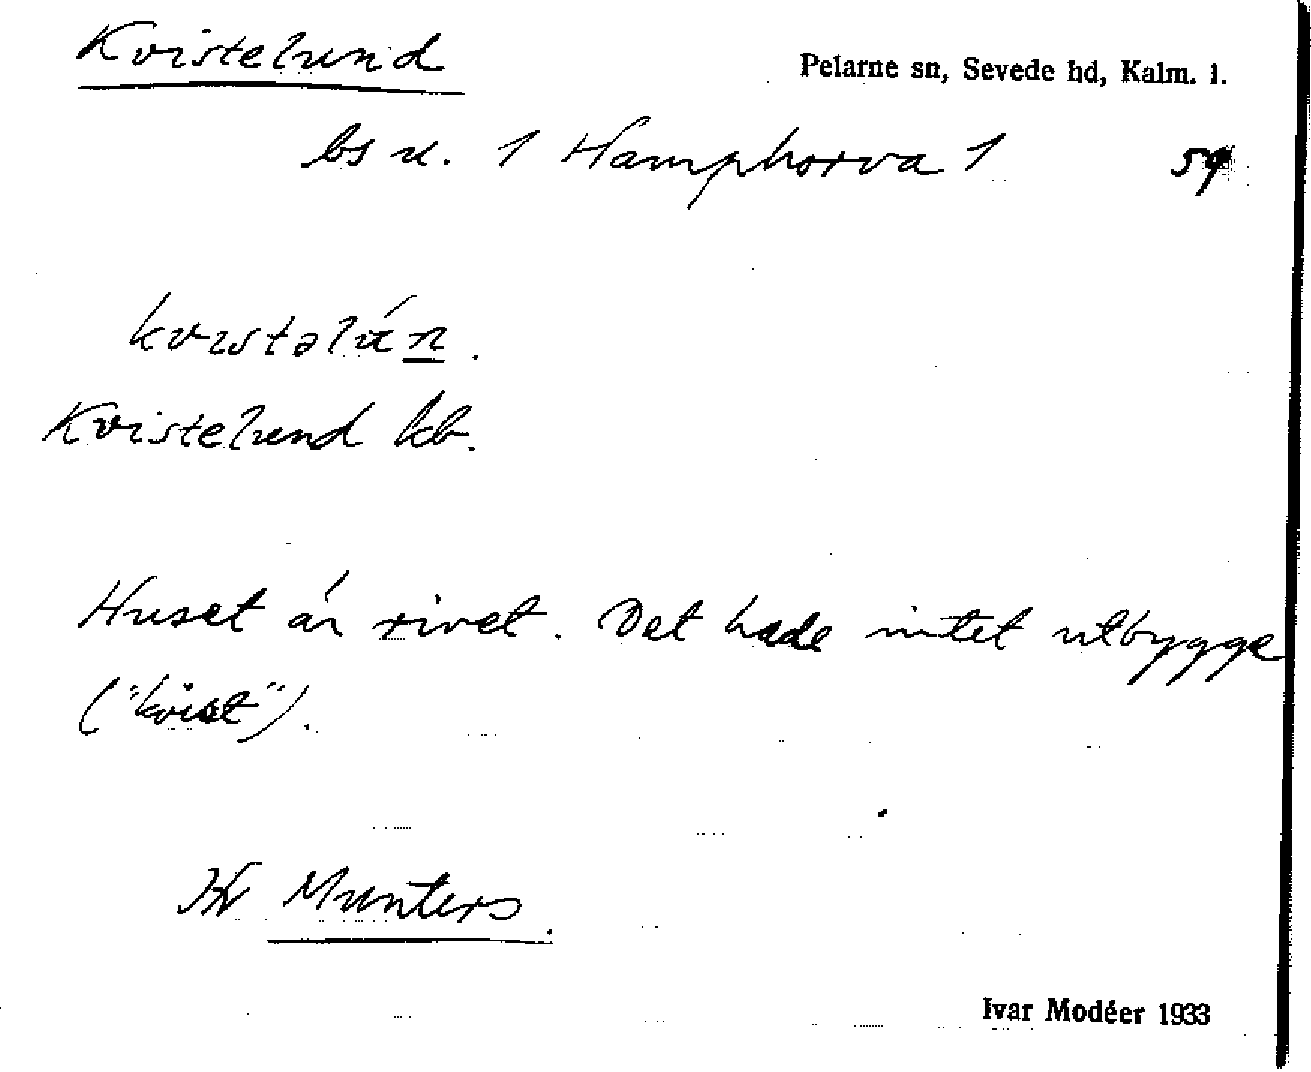 Kvistelund
Pelarne sn, Sevede hd, Kalm. l.
bs u. 1 Hamphorva 1 59
kvistəlún.
Kvistelund kb.
Huset är rivet. Det hade intet utbygge
("kvist").
Hr Munters.
Ivar Modéer 1933